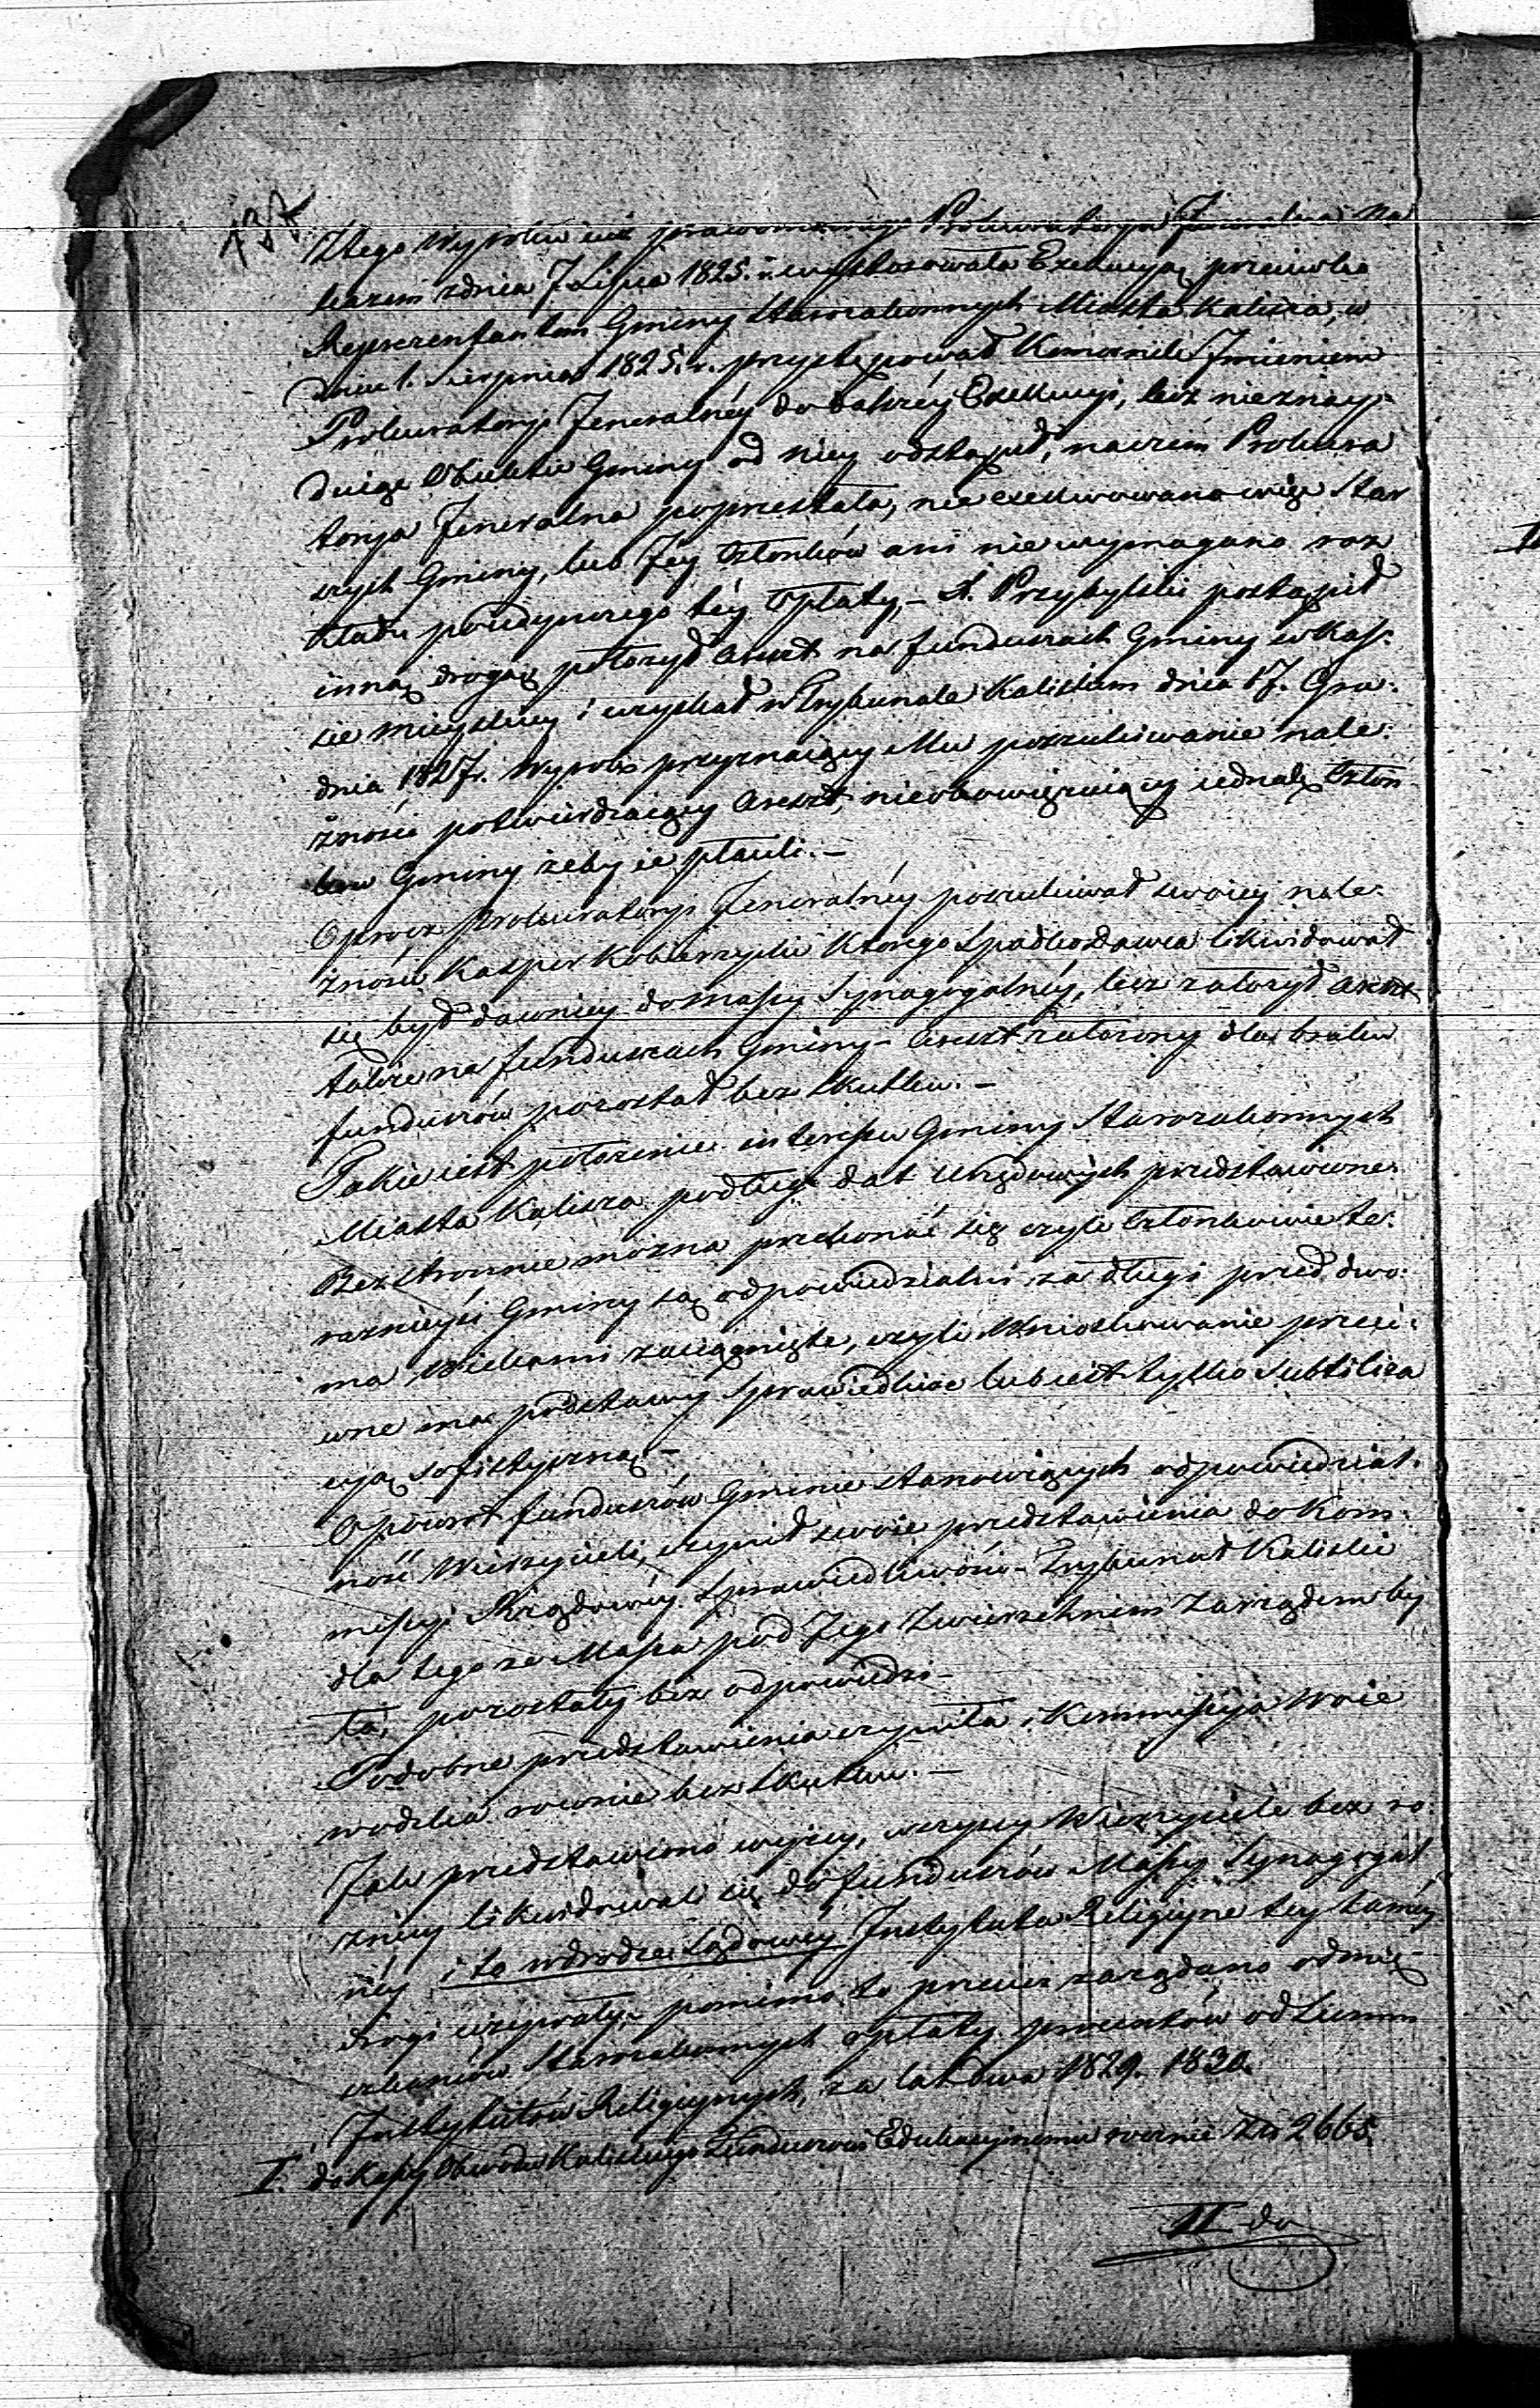 Z tego Wyroku iuż prawomocnego Prokuratorya Jeneralna Na
kazem z dnia 7 Lipca 1825. r. wystosowała Exekucyą przeciwko
Reprezentantom Gminy Starozakonnych Miasta Kalisza, w
dniu 1. Sierpnia 1825. r. przystępował Komornik Imieniem
Prokuratoryi Jeneralnéy do dalszéy Exekucyi, lecz nieznay=
duiąc Obiektu Gminy od niey odstąpił, naczem Prokura
torya Jeneralna poprzestała, nie exekwowano więc Star
szych Gminy, lub Jéy Członków ani nie wymagano roz
kładu pojedynczego téy Opłaty, – S. Przybylski postąpił
inną drogą położył Areszt na funduszach Gminy w Kas=
sie mieyskiey i uzyskał w Trybunale Kaliskim dnia 17. Gru=
dnia 1827 r. Wyrok przyznaiący Mu poszukiwanie nale=
żności potwierdzaiący Areszt, nieobowięzuiący iednak Człon
ków Gminy żeby ie płacili. –
Oprocz Prokuratoryi Jeneralnéy poszukiwał swoiey nale=
żności Kasper Kobierzycki Ktorego Spadkodawca likwidował
się był dawniey do massy Synagogalnéy, lecz założył Areszt
także na funduszach Gminy – Areszt założony dla braku
funduszów pozostał bez skutku. –
Takie iest położenie interessu Gminy Starozakonnych
Miasta Kalisza podług dat Urzędowych przedstawione.
Bezstronnie można przekonać się czyli Członkowie te=
raznieysi Gminy są odpowiedzialni za długi przed dwo=
ma Wiekami zaciągnięte, czyli Wnioskowanie przeci=
wne ma podstawy Sprawiedliwe lub iest tylko Subtiliza
cyą sofistyczną –
O powrot funduszów Gminie stanowiących odpowiedzial=
ność Wierzycieli, czynił swoie przedstawienia do Kom=
missyi Rządowéy Sprawiedliwości – Trybunał Kaliski
dla tego że Massa pod Jego Zwierzchnim Zarządem by
ła, pozostały bez odpowiedzi –
Podobne przedstawienia czyniła i Kommissyja Woie
wodzka rownie bez skutku. –
Jak przedstawiono wyżey, wszyscy Wierzyciele bez ro=
żnicy likwidowali się do funduszów Massy Synagogal
néy i to w drodze Sądowéy Instytuta Religiyne tey saméy
drogi używały, – pomimo to przecież zażądano od mię=
szkańców Starozakonnych opłaty procentów od Summ
Instytutów Religiynych, za lat dwa 1829. 1830.
I. do Kassy Obwodu Kaliskiego Funduszowi Edukacyjnemu rocznie Złł 2665.
II do